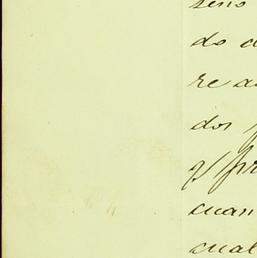 seno
do a
re a
dos p
y/pr
cuan
cual